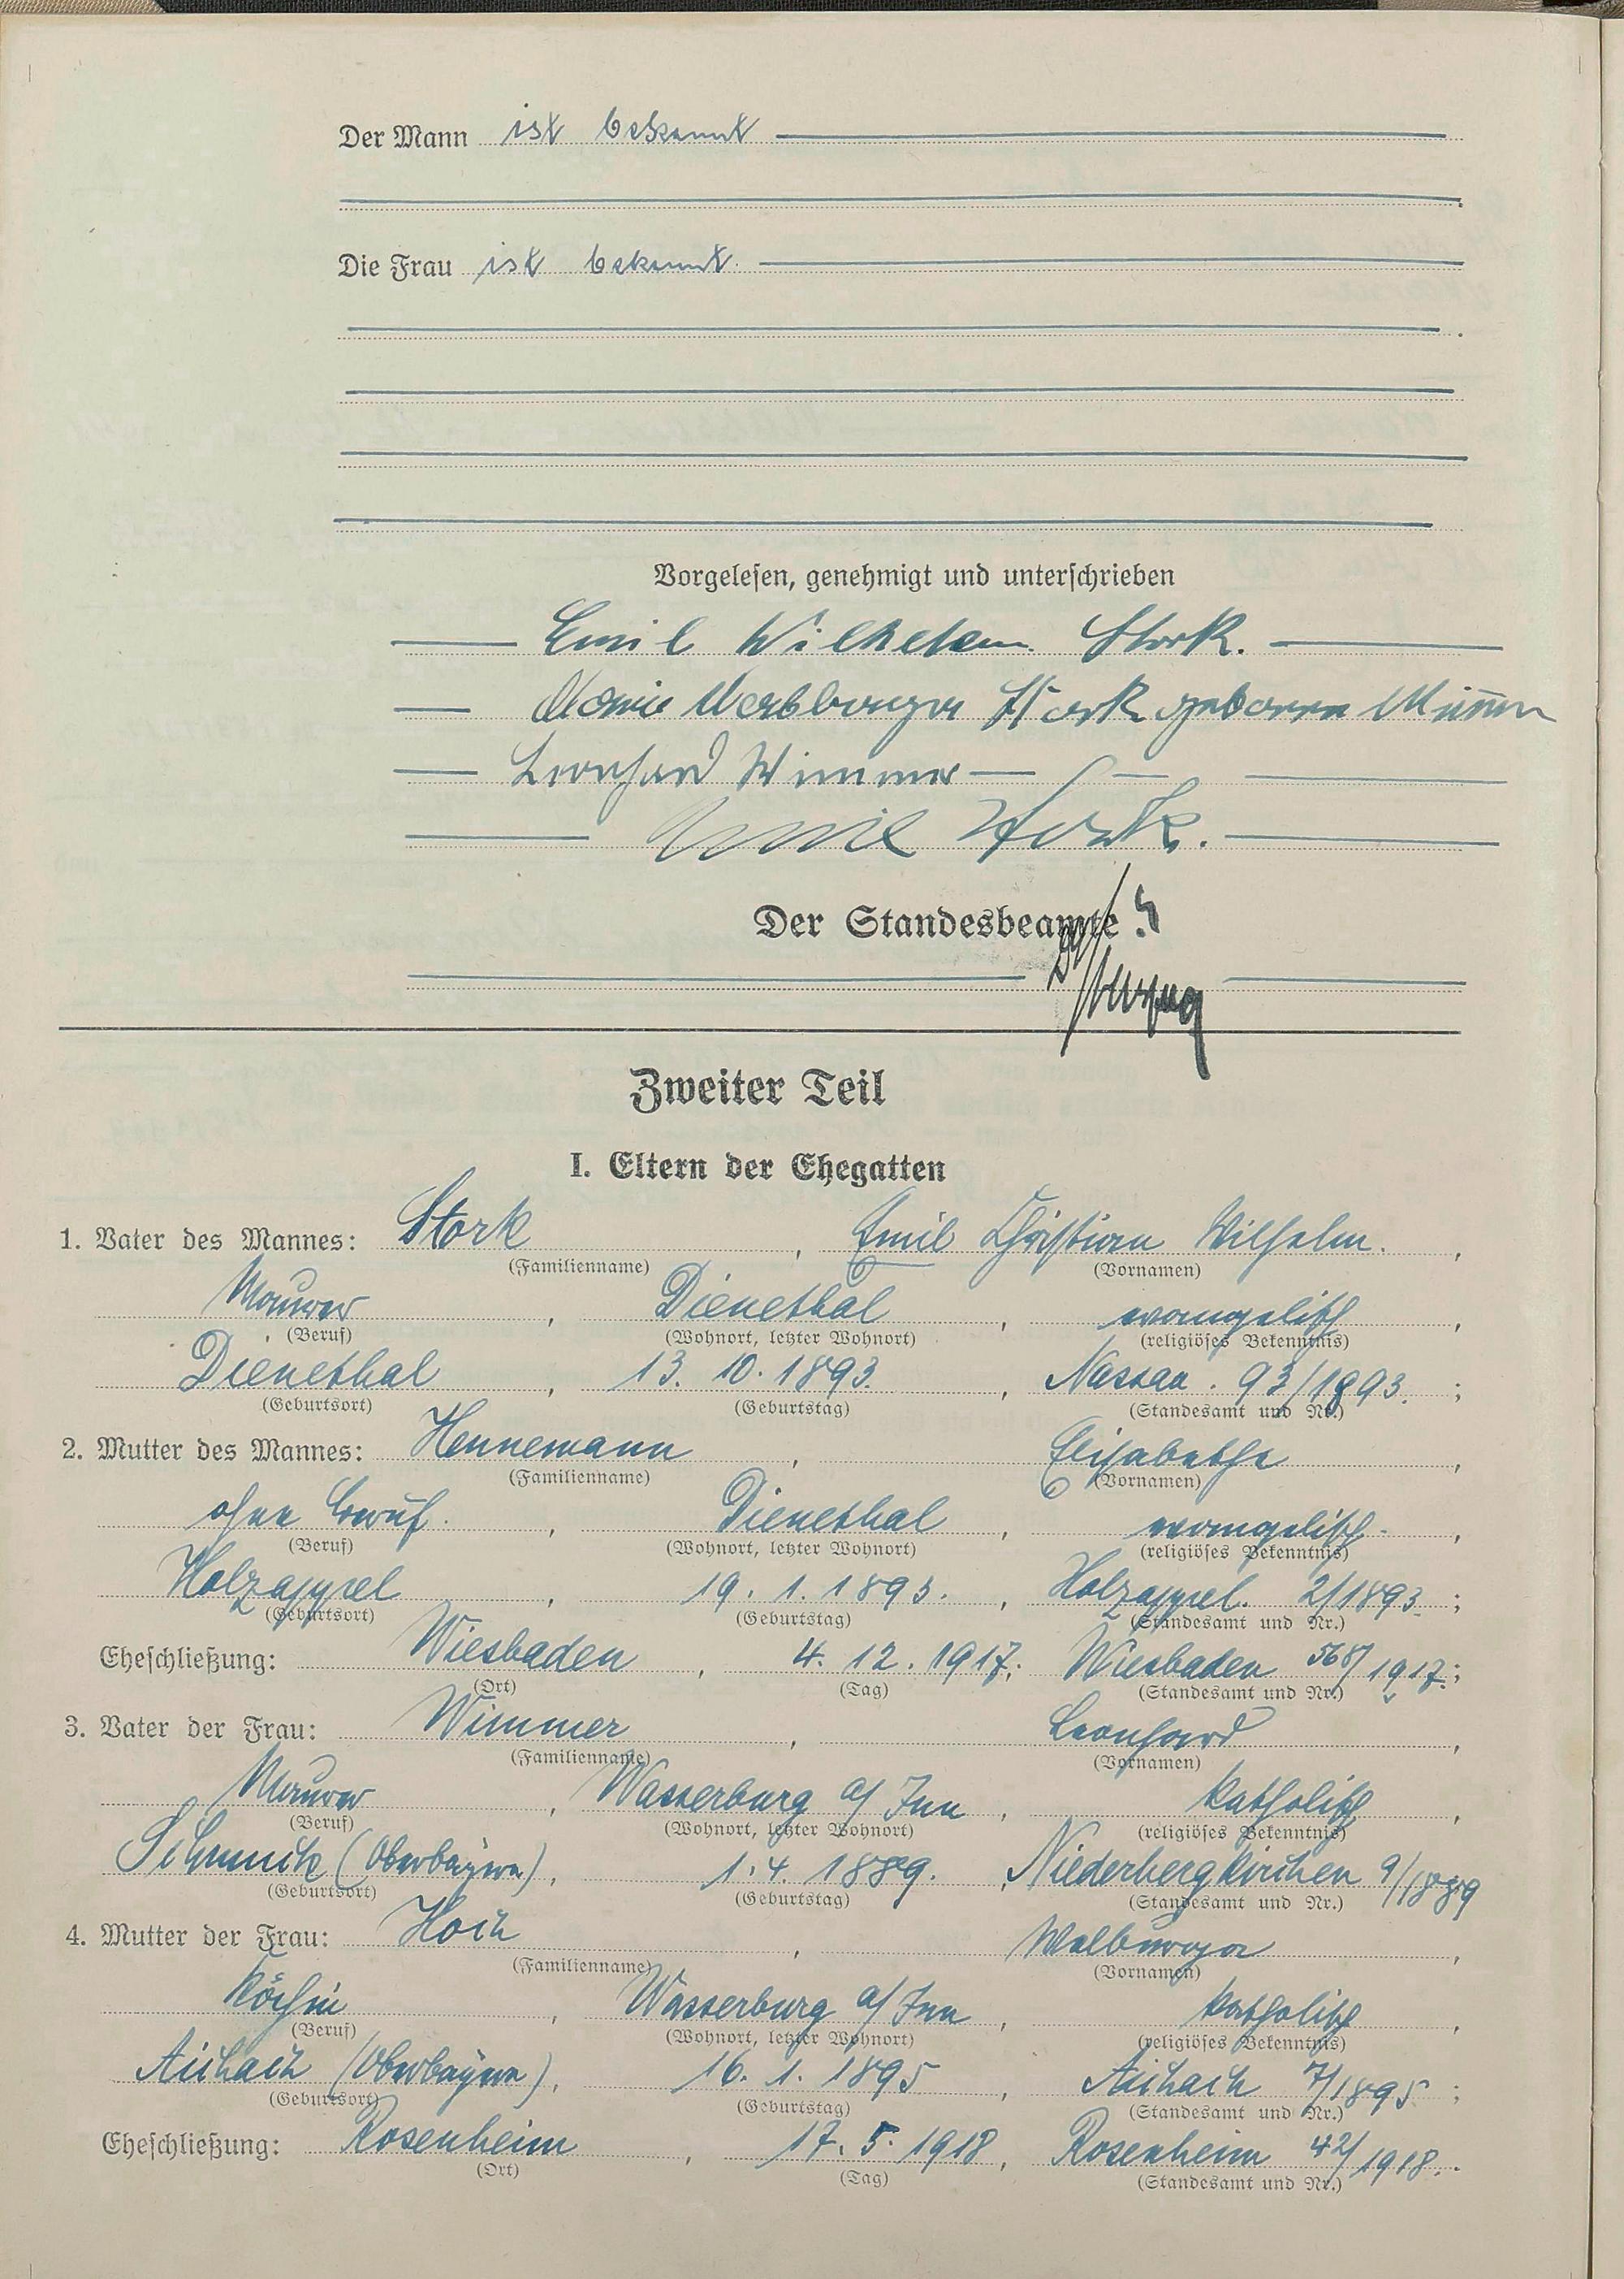 Der Mann ist bekannt
Die Frau ist bekannt
Vorgelesen, genehmigt und unterschrieben
Emil Wilhelm Stork.
Marie Walburga Stork geborene
Leonhard Wimmer
Emil Stork.
Der Standesbeamte
Zweiter Teil
I. Eltern der Ehegatten
1. Vater des Mannes: Stork, Emil Christian Wilhelm.,
(Familienname) (Vornamen)
Maurer, Dienethal, evangelisch,
(Beruf) (Wohnort, letzter Wohnort) (religiöses Bekenntnis)
Dienethal, 13. 10. 1893., Nassau. 93/1893.;
(Geburtsort) (Geburtstag) (Standesamt und Nr.)
2. Mutter des Mannes: Hennemann, Elisabethe,
(Familienname) (Vornamen)
ohne Beruf., Dienethal, evangelisch.,
(Beruf) (Wohnort, letzter Wohnort) (religiöses Bekenntnis)
Holzappel, 19. 1. 1893., Holzappel. 2/1893.;
(Geburtsort) (Geburtstag) (Standesamt und Nr.)
Eheschließung: Wiesbaden, 4. 12. 1917.; Wiesbaden 568/1917.;
(Ort) (Tag) (Standesamt und Nr.)
3. Vater der Frau: Wimmer, Leonhard,
(Familienname) (Vornamen)
Maurer, Wasserburg a/ Inn, katholisch,
(Beruf) (Wohnort, letzter Wohnort) (religiöses Bekenntnis)
(Oberbayern), 1. 4. 1889., Niederbergkirchen 9/1889
(Geburtsort) (Geburtstag) (Standesamt und Nr.)
4. Mutter der Frau: Hoch, Walburga,
(Familienname) (Vornamen)
Köchin, Wasserburg a/ Inn, katholisch,
(Beruf) (Wohnort, letzter Wohnort) (religiöses Bekenntnis)
Aichach (Oberbayern), 16. 1. 1895, Aichach 7/1895;
(Geburtsort) (Geburtstag) (Standesamt und Nr.)
Eheschließung: Rosenheim, 17. 5. 1918, Rosenheim 42/1918.
(Ort) (Tag) (Standesamt und Nr.)